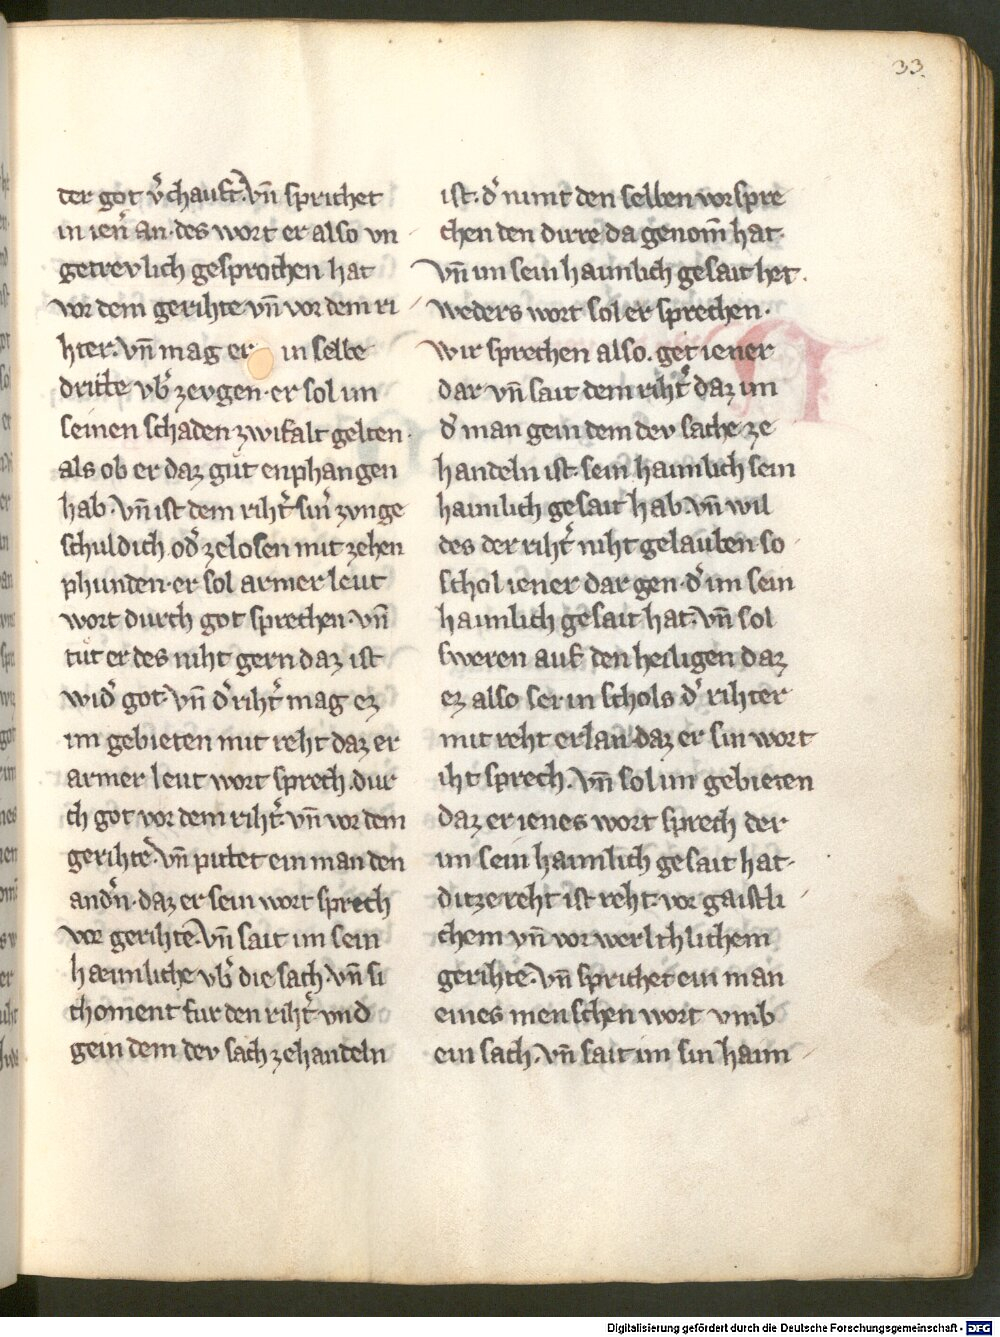 33
der got v̾chauft. vn̄ sprichet
in ien̾ an. des wort er also vn
getrevlich gesprochen hat
vor dem gerihte vn̄ vor dem ri
hter. vn̄ mag er in selbe
dritte vb̾ zevgen. er sol im
seinen schaden zwifalt gelten.
als ob er daz gůt enphangen
hab. vn̄ ist dem riht̾ sin̾ zvnge
schuldich. od̾ zelosen mit zehen
phunden. er sol armer leut
wort durch got sprechen. vn̄
tůt er des niht gern daz ist
wid̾ got. vn̄ d̾ riht̾ mag ez
im gebieten mit reht daz er
armer leut wort sprech. dur
ch got vor dem riht̾. vn̄ vor dem
gerihte. vn̄ pittet ein man den
and̾n. daz er sein wort sprech
vor gerihte. vn̄ sait im sein
haimliche vb̾ die sach. vn̄ si
choment fur den riht̾ vnd
gein dem dev sach zehandeln
ist. d̾ nimt den selben vorspre
chen den dirre da genom̄ hat.
vn̄ im sein haimlich gesait het.
weders wort sol er sprechen.
wir sprechen also. get iener
dar vn̄ sait dem riht̾ daz im
d̾ man gein dem dev sache ze
handeln ist. sein haimlich sein
haimlich gesait hab. vn̄ wil
des der riht̾ niht gelauben. so
schol iener dar gen. d̾ im sein
haimlich gesait hat. vn̄ sol
sweren auf den heiligen daz
ez also ser in schols d̾ rihter
mit reht erlan. daz er sin wort
iht sprech. vn̄ sol im gebieten
daz er ienes wort sprech der
im sein haimlich gesait hat.
ditze reht ist reht. vor gaistli
chem vn̄ vor werlthlichem
gerihte. vn̄ sprichet ein man
eines menschen wort vmb
ein sach. vn̄ sait im sin haim
Digitalisierung gefördert durch die Deutsche Forschungsgemeinschaft - DFG